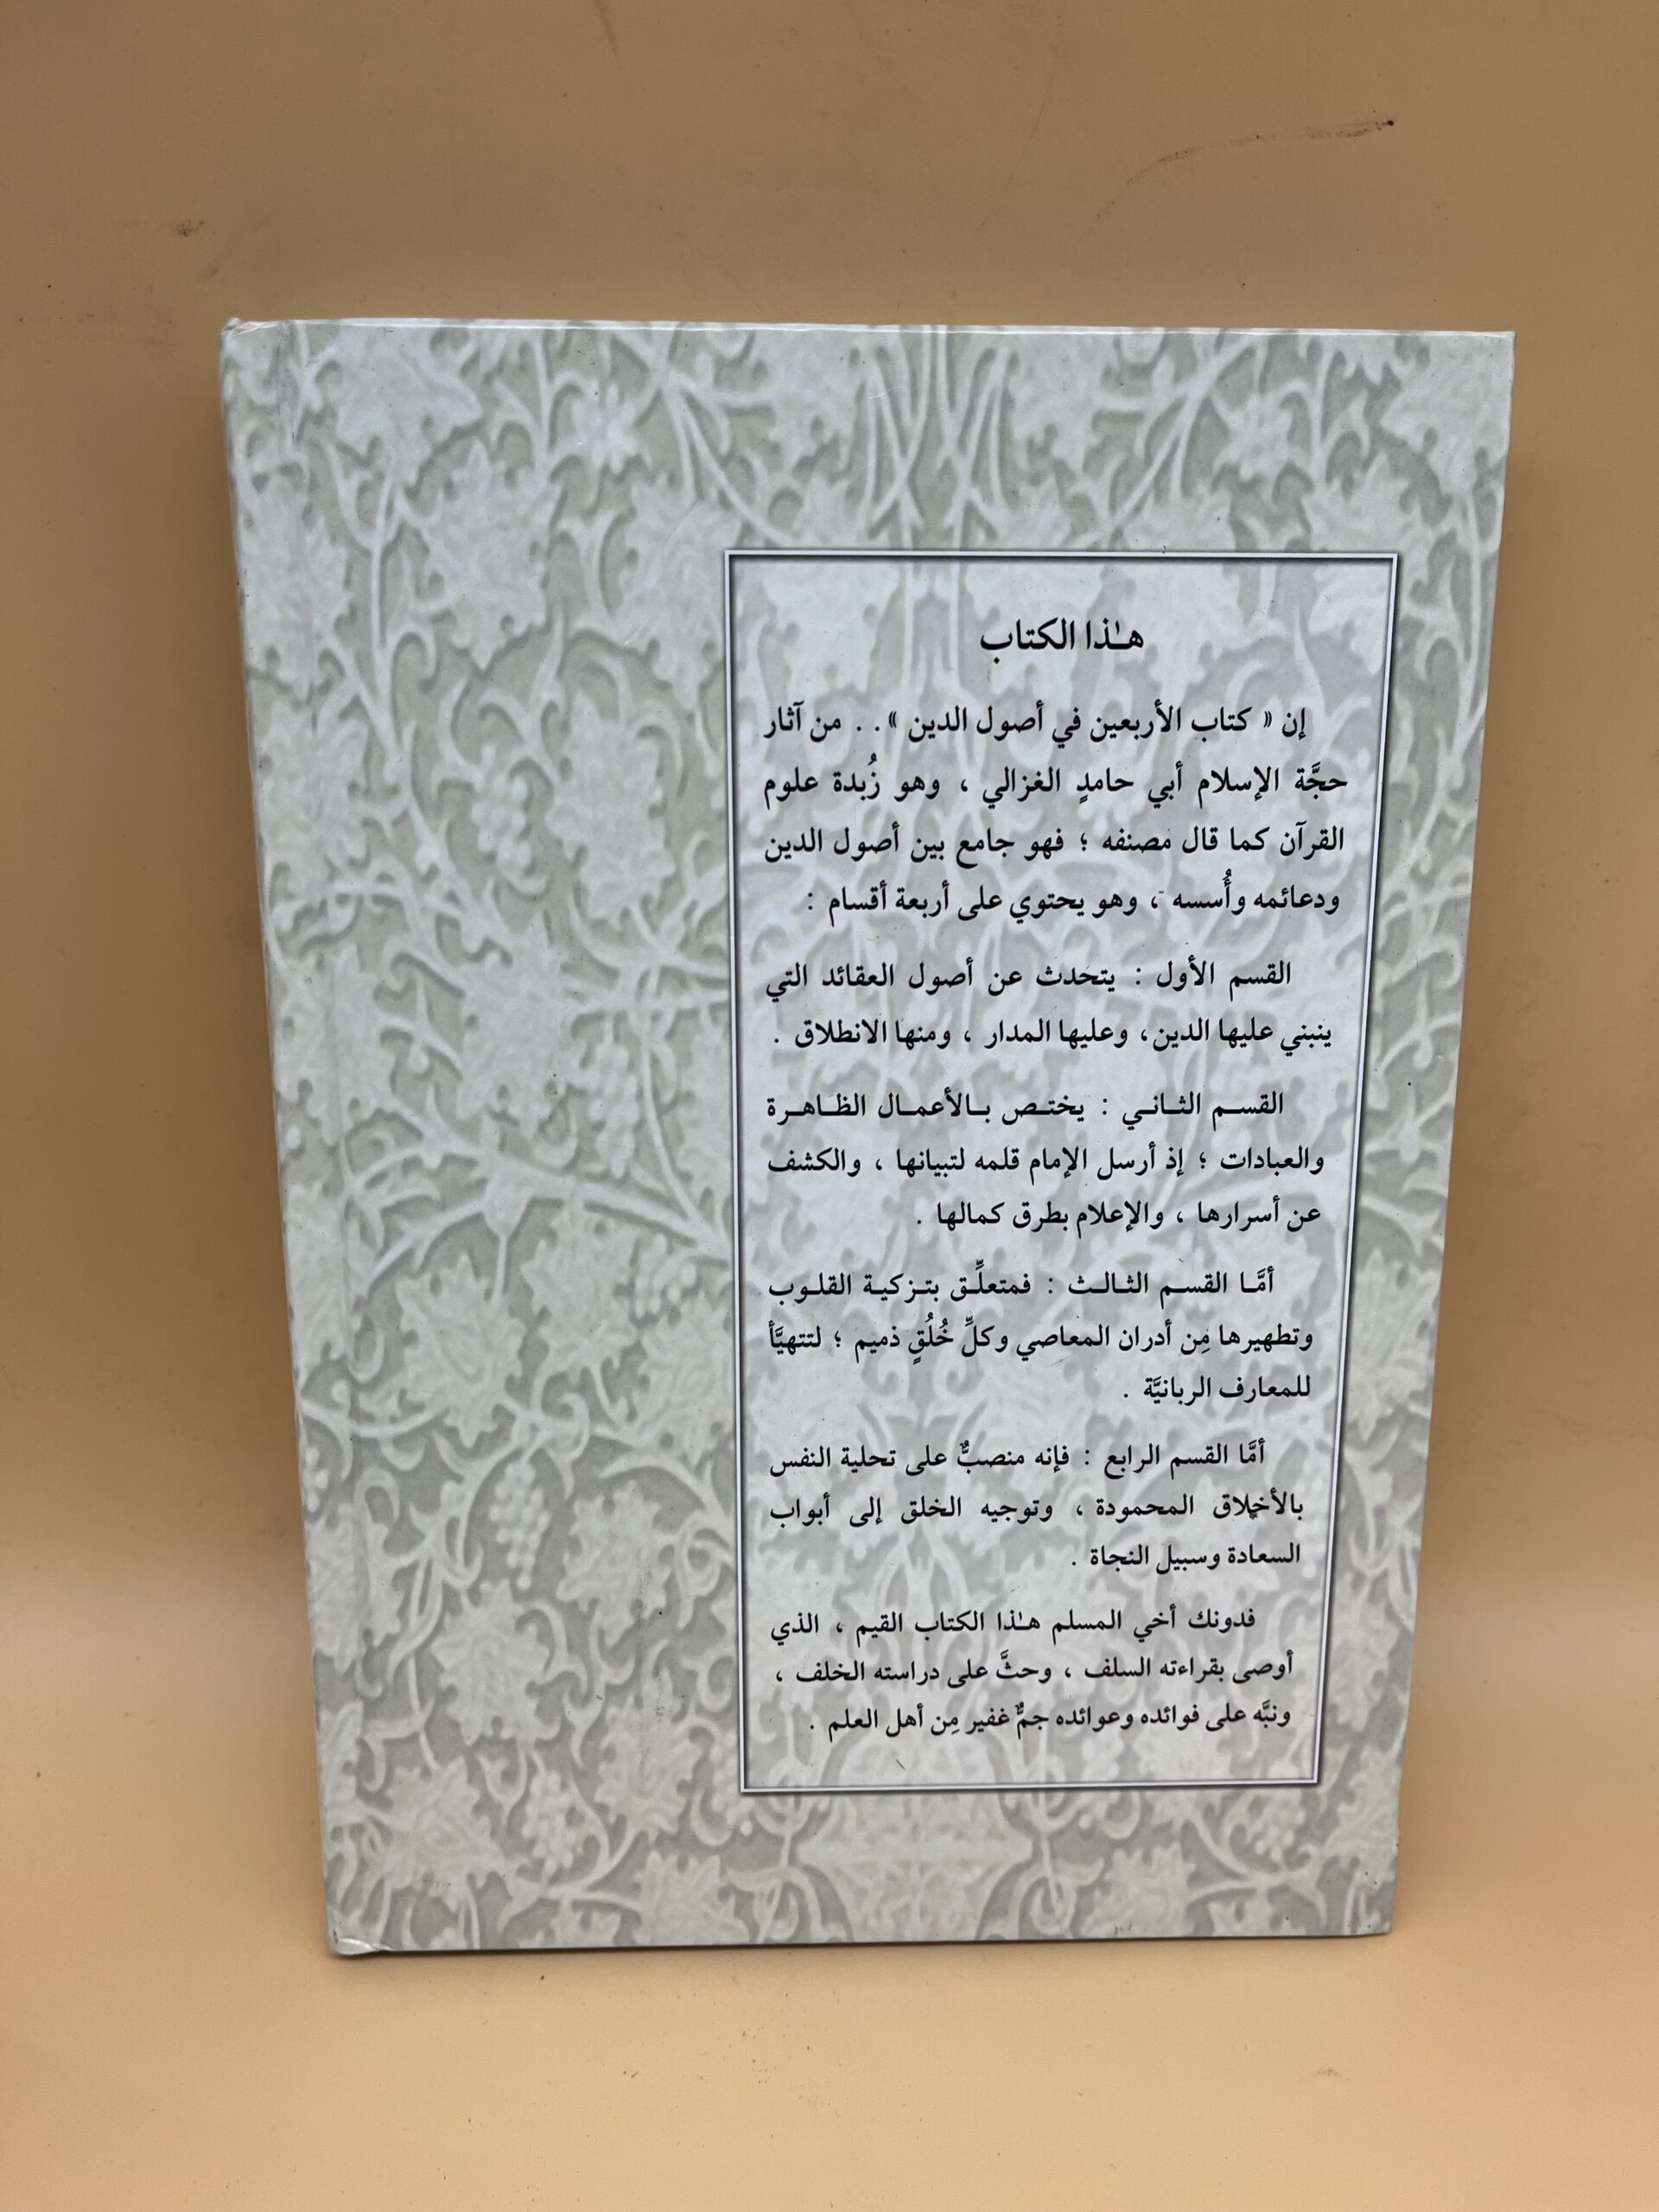 هـٰذا الكتاب
إن « كتاب الأربعين في أصول الدين » . . من آثار
حجَّة الإسلام أبي حامدٍ الغزالي ، وهو زُبدة علوم
القرآن كما قال مصنفه ؛ فهو جامع بين أصول الدين
ودعائمه وأُسسه ، وهو يحتوي على أربعة أقسام :
القسم الأول : يتحدث عن أصول العقائد التي
ينبني عليها الدين، وعليها المدار ، ومنها الانطلاق .
القسـم الثـانـي : يختـص بـالأعمـال الظـاهـرة
والعبادات ؛ إذ أرسل الإمام قلمه لتبيانها ، والكشف
عن أسرارها ، والإعلام بطرق كمالها .
أمَّـا القسـم الثـالـث : فمتعلِّـق بتـزكيـة القلـوب
وتطهيرها مِن أدران المعاصي وكلِّ خُلُقٍ ذميم ؛ لتتهيَّأ
للمعارف الربانيَّة .
أمَّا القسم الرابع : فإنه منصبٌّ على تحلية النفس
بالأخلاق المحمودة ، وتوجيه الخلق إلى أبواب
السعادة وسبيل النجاة .
فدونك أخي المسلم هـٰذا الكتاب القيم ، الذي
أوصى بقراءته السلف ، وحثَّ على دراسته الخلف ،
ونبَّه على فوائده وعوائده جمٌّ غفير مِن أهل العلم .